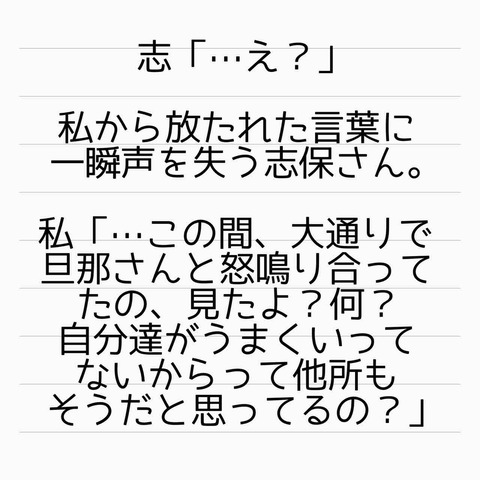 志「…え？」
私から放たれた言葉に
一瞬声を失う志保さん。
私「…この間、大通りで
旦那さんと怒鳴り合って
たの、見たよ？何？
自分達がうまくいって
ないからって他所も
そうだと思ってるの？」